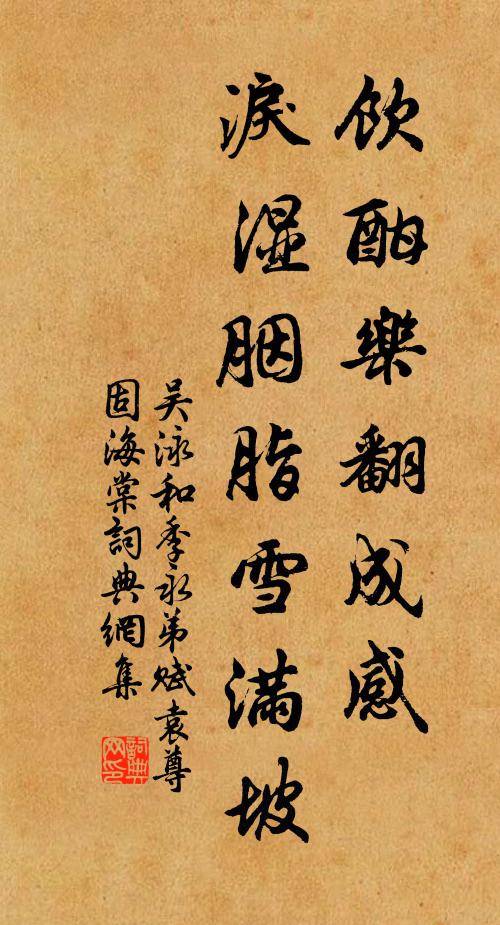 飲酣樂翻成感
淚湿胭脂雪满坡
吴泳和季永弟赋袁尊
固海棠詞典網集
詞典网印